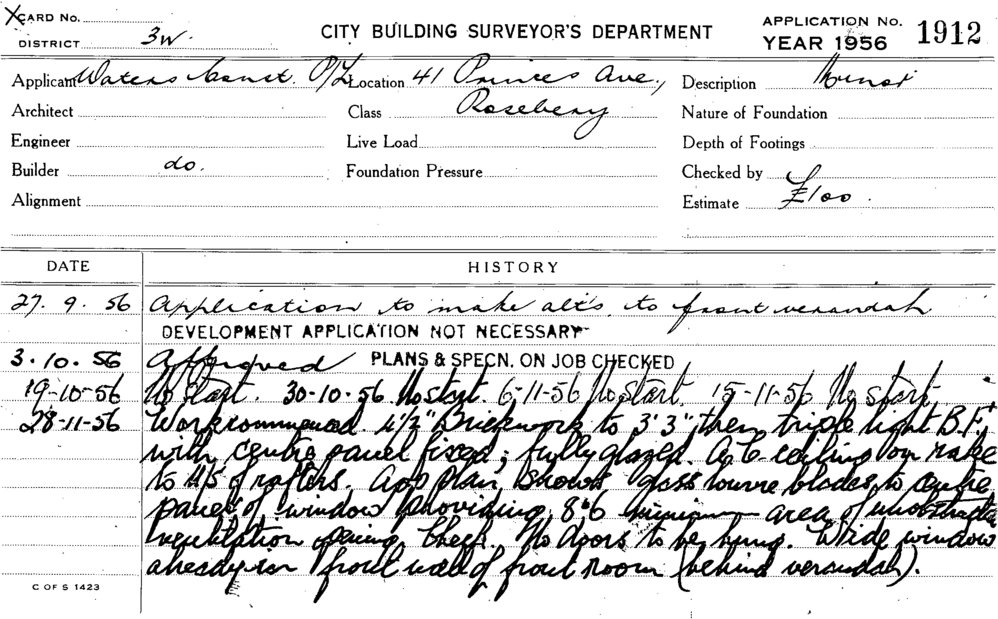 X CARD No.
DISTRICT 3W.
CITY BUILDING SURVEYOR'S DEPARTMENT
APPLICATION No. 1912
YEAR 1956
Applicant Waters Const. P/L Location 41 Princes Ave., Description Minor
Architect Class Rosebery Nature of Foundation
Engineer Live Load Depth of Footings
Builder do. Foundation Pressure Checked by
Alignment Estimate £100.
DATE HISTORY
27. 9. 56 Application to make alts. to front verandah
DEVELOPMENT APPLICATION NOT NECESSARY
3.10.56 Approved PLANS & SPECN. ON JOB CHECKED
19-10-56 No start. 30-10-56 No start. 6-11-56 No start. 15-11-56 No start.
28-11-56 Work commenced. 4½" Brickwork to 3'3", then triple light B.F.,
with centre panel fixed; fully glazed. A.C. ceiling on rake
to U/S of rafters. App plan shows glass louvre blades to centre
panel of window providing 8'6 minimum area of unobstructed
ventilation opening. Check. No doors to be hung. Wide window
already in front wall of front room (behind verandah).
C OF S 1423